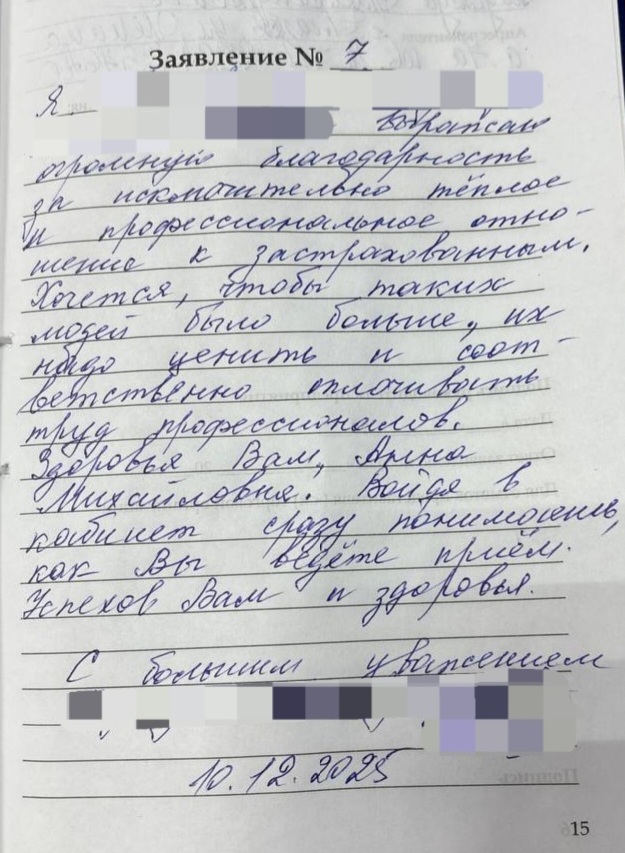 Заявление № 7
Я
выражаю
огромную благодарность
за исключительно тёплое
и профессиональное отно-
шение к застрахованным.
Хочется, чтобы таких
людей было больше, их
надо ценить и соот-
ветственно оплачивать
труд профессионалов.
Здоровья Вам, Анна
Михайловна. Войдя в
кабинет сразу понимаешь,
как Вы ведёте приём.
Успехов Вам и здоровья.
С большим уважением
10.12.2025
15